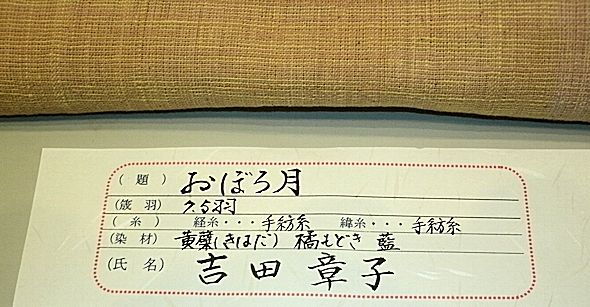 (題) おぼろ月
(筬羽) 7.5羽
(糸) 経糸・・・手紡糸 緯糸・・・手紡糸
(染材) 黄蘗(きはだ) 橘もどき 藍
(氏名) 吉田章子